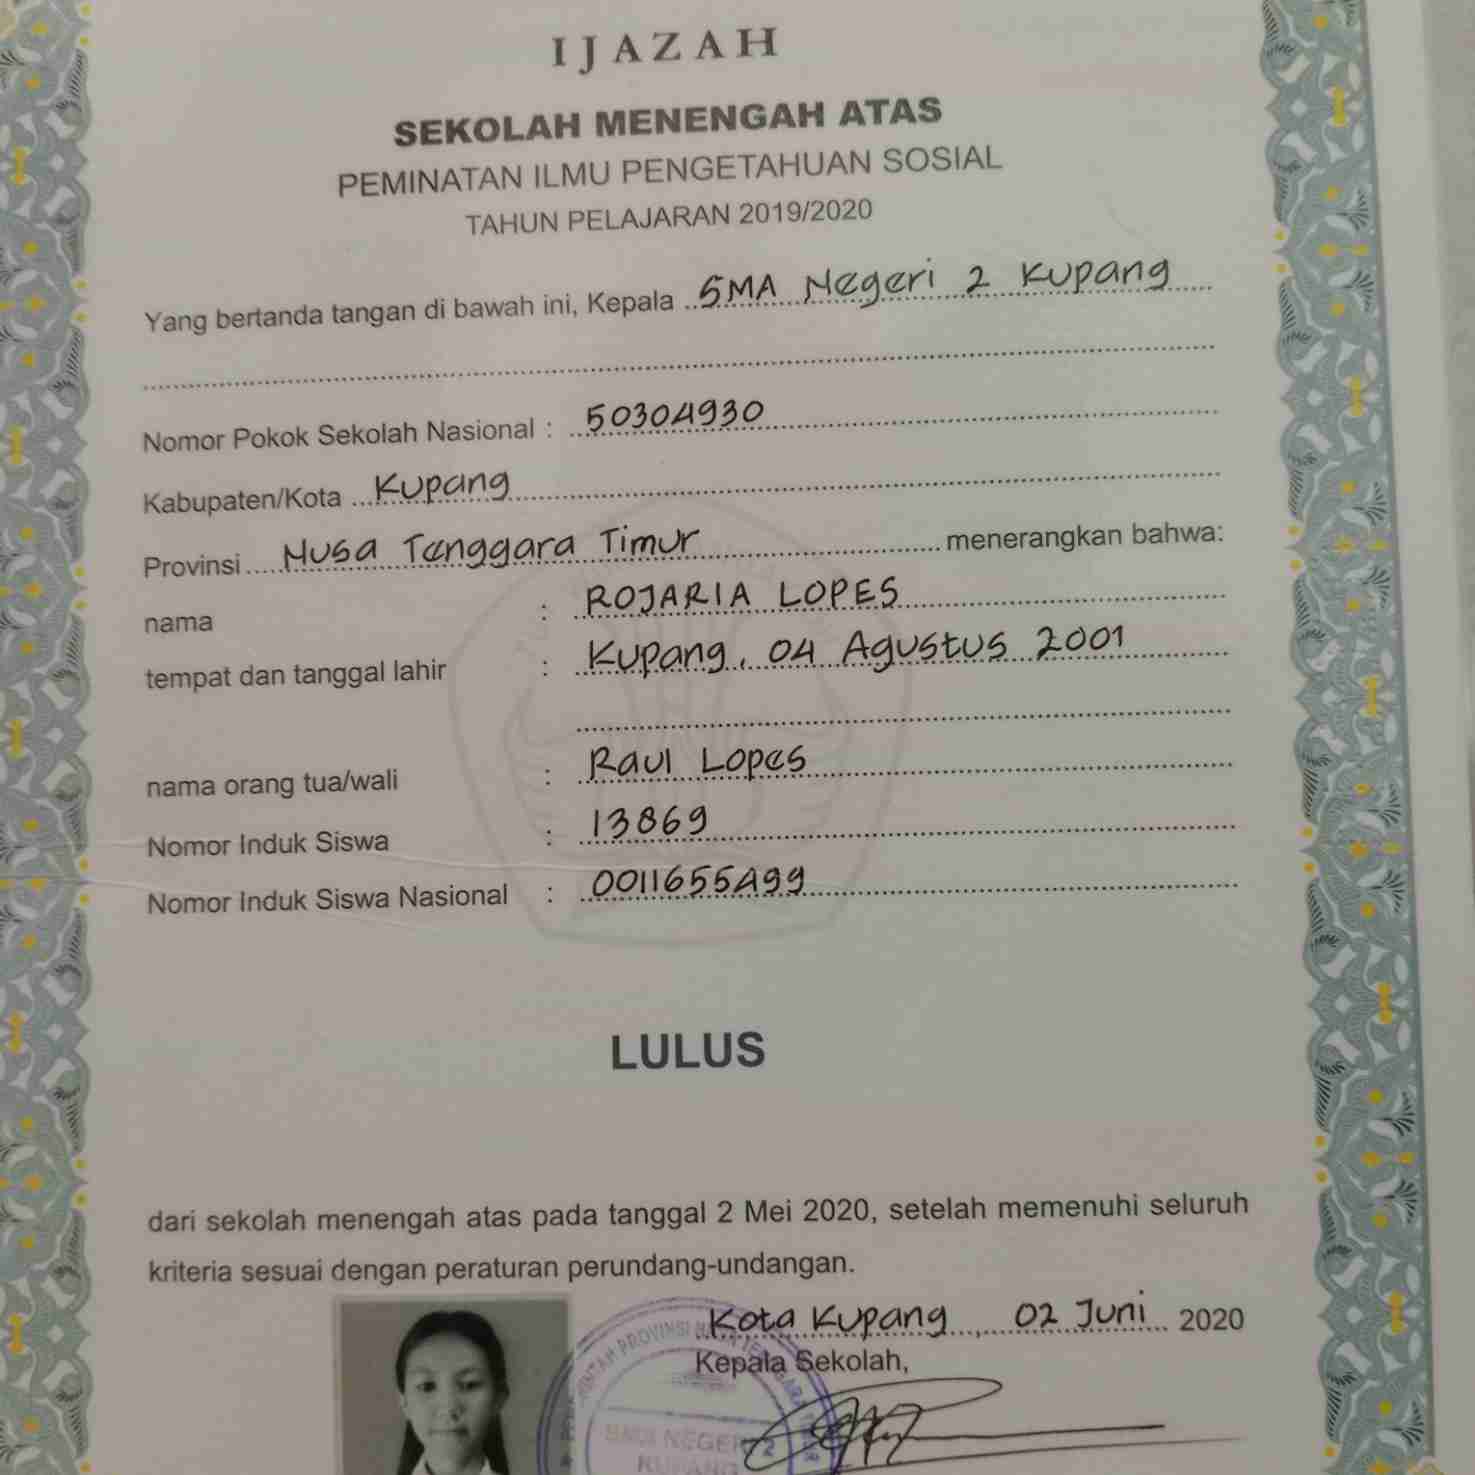 IJAZAH
SEKOLAH MENENGAH ATAS
PEMINATAN ILMU PENGETAHUAN SOSIAL
TAHUN PELAJARAN 2019/2020
Yang bertanda tangan di bawah ini, Kepala SMA Negeri 2 Kupang
Nomor Pokok Sekolah Nasional : 50304930
Kabupaten/Kota Kupang
Provinsi Nusa Tenggara Timur menerangkan bahwa:
nama : ROJARIA LOPES
tempat dan tanggal lahir : Kupang, 04 Agustus 2001
nama orang tua/wali : Raul Lopes
Nomor Induk Siswa : 13869
Nomor Induk Siswa Nasional : 0011655499
LULUS
dari sekolah menengah atas pada tanggal 2 Mei 2020, setelah memenuhi seluruh
kriteria sesuai dengan peraturan perundang-undangan.
Kota Kupang, 02 Juni 2020
Kepala Sekolah,
PROVINSI
SMA NEGERI 2
KUPANG